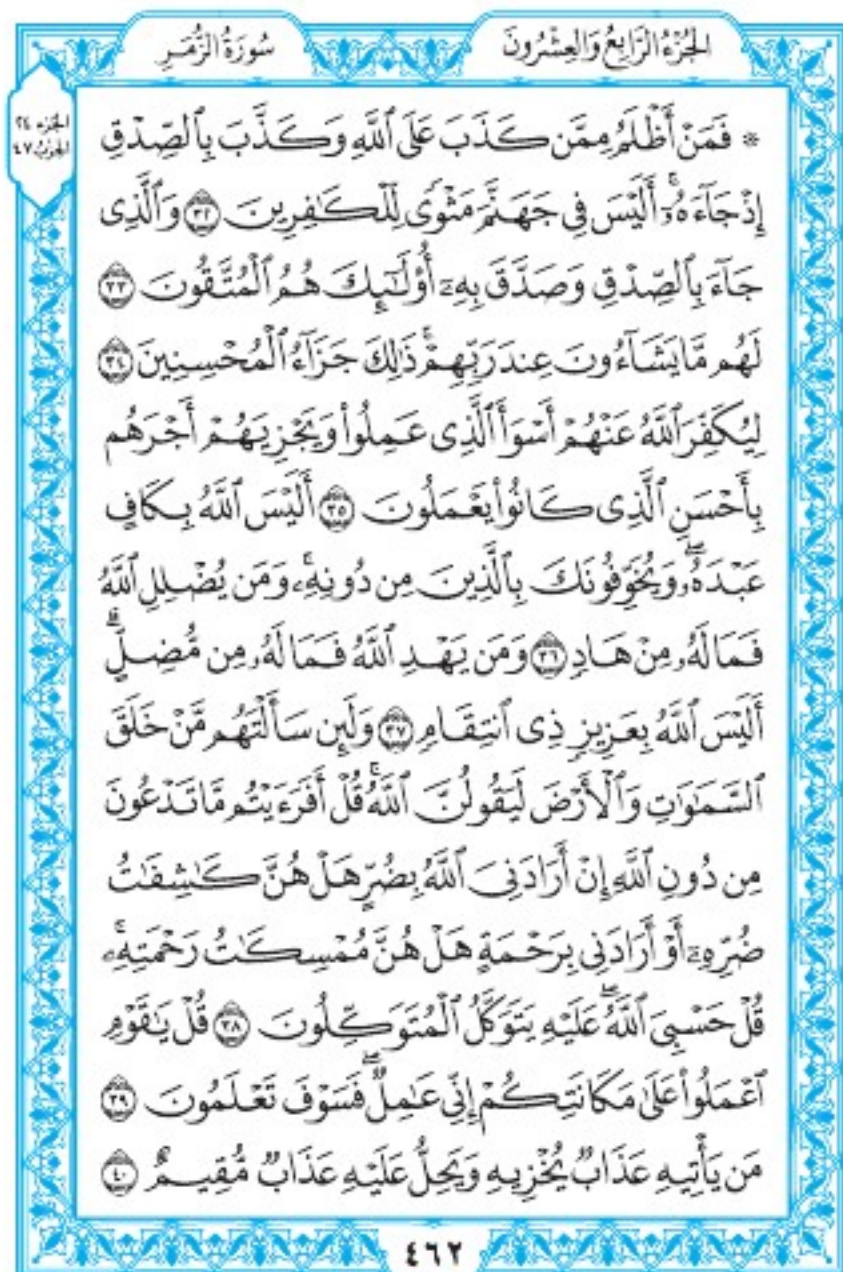 الجُزْءُ الرَّابِعُ وَالعِشْرُونَ
سُورَةُ الزُّمَرِ
الجزء ٢٤
الحزب ٤٧
۞ فَمَنْ أَظْلَمُ مِمَّن كَذَبَ عَلَى ٱللَّهِ وَكَذَّبَ بِٱلصِّدْقِ
إِذْ جَآءَهُۥٓۚ أَلَيْسَ فِى جَهَنَّمَ مَثْوًى لِّلْكَٰفِرِينَ ٣٢ وَٱلَّذِى
جَآءَ بِٱلصِّدْقِ وَصَدَّقَ بِهِۦٓ أُو۟لَٰٓئِكَ هُمُ ٱلْمُتَّقُونَ ٣٣
لَهُم مَّا يَشَآءُونَ عِندَ رَبِّهِمْۚ ذَٰلِكَ جَزَآءُ ٱلْمُحْسِنِينَ ٣٤
لِيُكَفِّرَ ٱللَّهُ عَنْهُمْ أَسْوَأَ ٱلَّذِى عَمِلُوا۟ وَيَجْزِيَهُمْ أَجْرَهُم
بِأَحْسَنِ ٱلَّذِى كَانُوا۟ يَعْمَلُونَ ٣٥ أَلَيْسَ ٱللَّهُ بِكَافٍ
عَبْدَهُۥۖ وَيُخَوِّفُونَكَ بِٱلَّذِينَ مِن دُونِهِۦۚ وَمَن يُضْلِلِ ٱللَّهُ
فَمَا لَهُۥ مِنْ هَادٍ ٣٦ وَمَن يَهْدِ ٱللَّهُ فَمَا لَهُۥ مِن مُّضِلٍّۗ
أَلَيْسَ ٱللَّهُ بِعَزِيزٍ ذِى ٱنتِقَامٍ ٣٧ وَلَئِن سَأَلْتَهُم مَّنْ خَلَقَ
ٱلسَّمَٰوَٰتِ وَٱلْأَرْضَ لَيَقُولُنَّ ٱللَّهُۚ قُلْ أَفَرَءَيْتُم مَّا تَدْعُونَ
مِن دُونِ ٱللَّهِ إِنْ أَرَادَنِىَ ٱللَّهُ بِضُرٍّ هَلْ هُنَّ كَٰشِفَٰتُ
ضُرِّهِۦٓ أَوْ أَرَادَنِى بِرَحْمَةٍ هَلْ هُنَّ مُمْسِكَٰتُ رَحْمَتِهِۦۚ
قُلْ حَسْبِىَ ٱللَّهُۖ عَلَيْهِ يَتَوَكَّلُ ٱلْمُتَوَكِّلُونَ ٣٨ قُلْ يَٰقَوْمِ
ٱعْمَلُوا۟ عَلَىٰ مَكَانَتِكُمْ إِنِّى عَٰمِلٌۖ فَسَوْفَ تَعْلَمُونَ ٣٩
مَن يَأْتِيهِ عَذَابٌ يُخْزِيهِ وَيَحِلُّ عَلَيْهِ عَذَابٌ مُّقِيمٌ ٤٠
٤٦٢